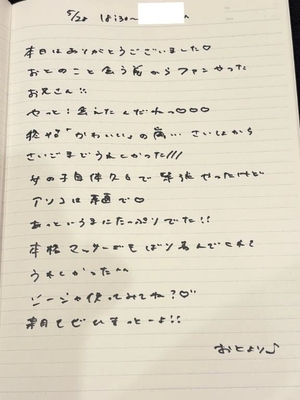 5/28 18:30~
本日はありがとうございました♡
おとのこと会う前からファンやった
お兄さん!!
やっと!会えたんだねっ♡♡♡
「かわいい」の嵐… さいしょから
さいごまでうれしかった///
女の子自体久々で緊張やったけど
アソコは素直で♡
あっというまにたっぷりでた!!
本格マッサージも よろんでくれて
うれしかった^^
使ってみてね?♡
来月もぜひまっとーよ!!
おとより♪